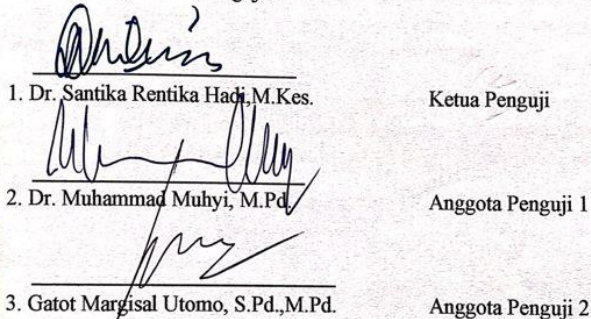 1. Dr. Santika Rentika Hadi,M.Kes. Ketua Penguji
2. Dr. Muhammad Muhyi, M.Pd. Anggota Penguji 1
3. Gatot Margisal Utomo, S.Pd.,M.Pd. Anggota Penguji 2